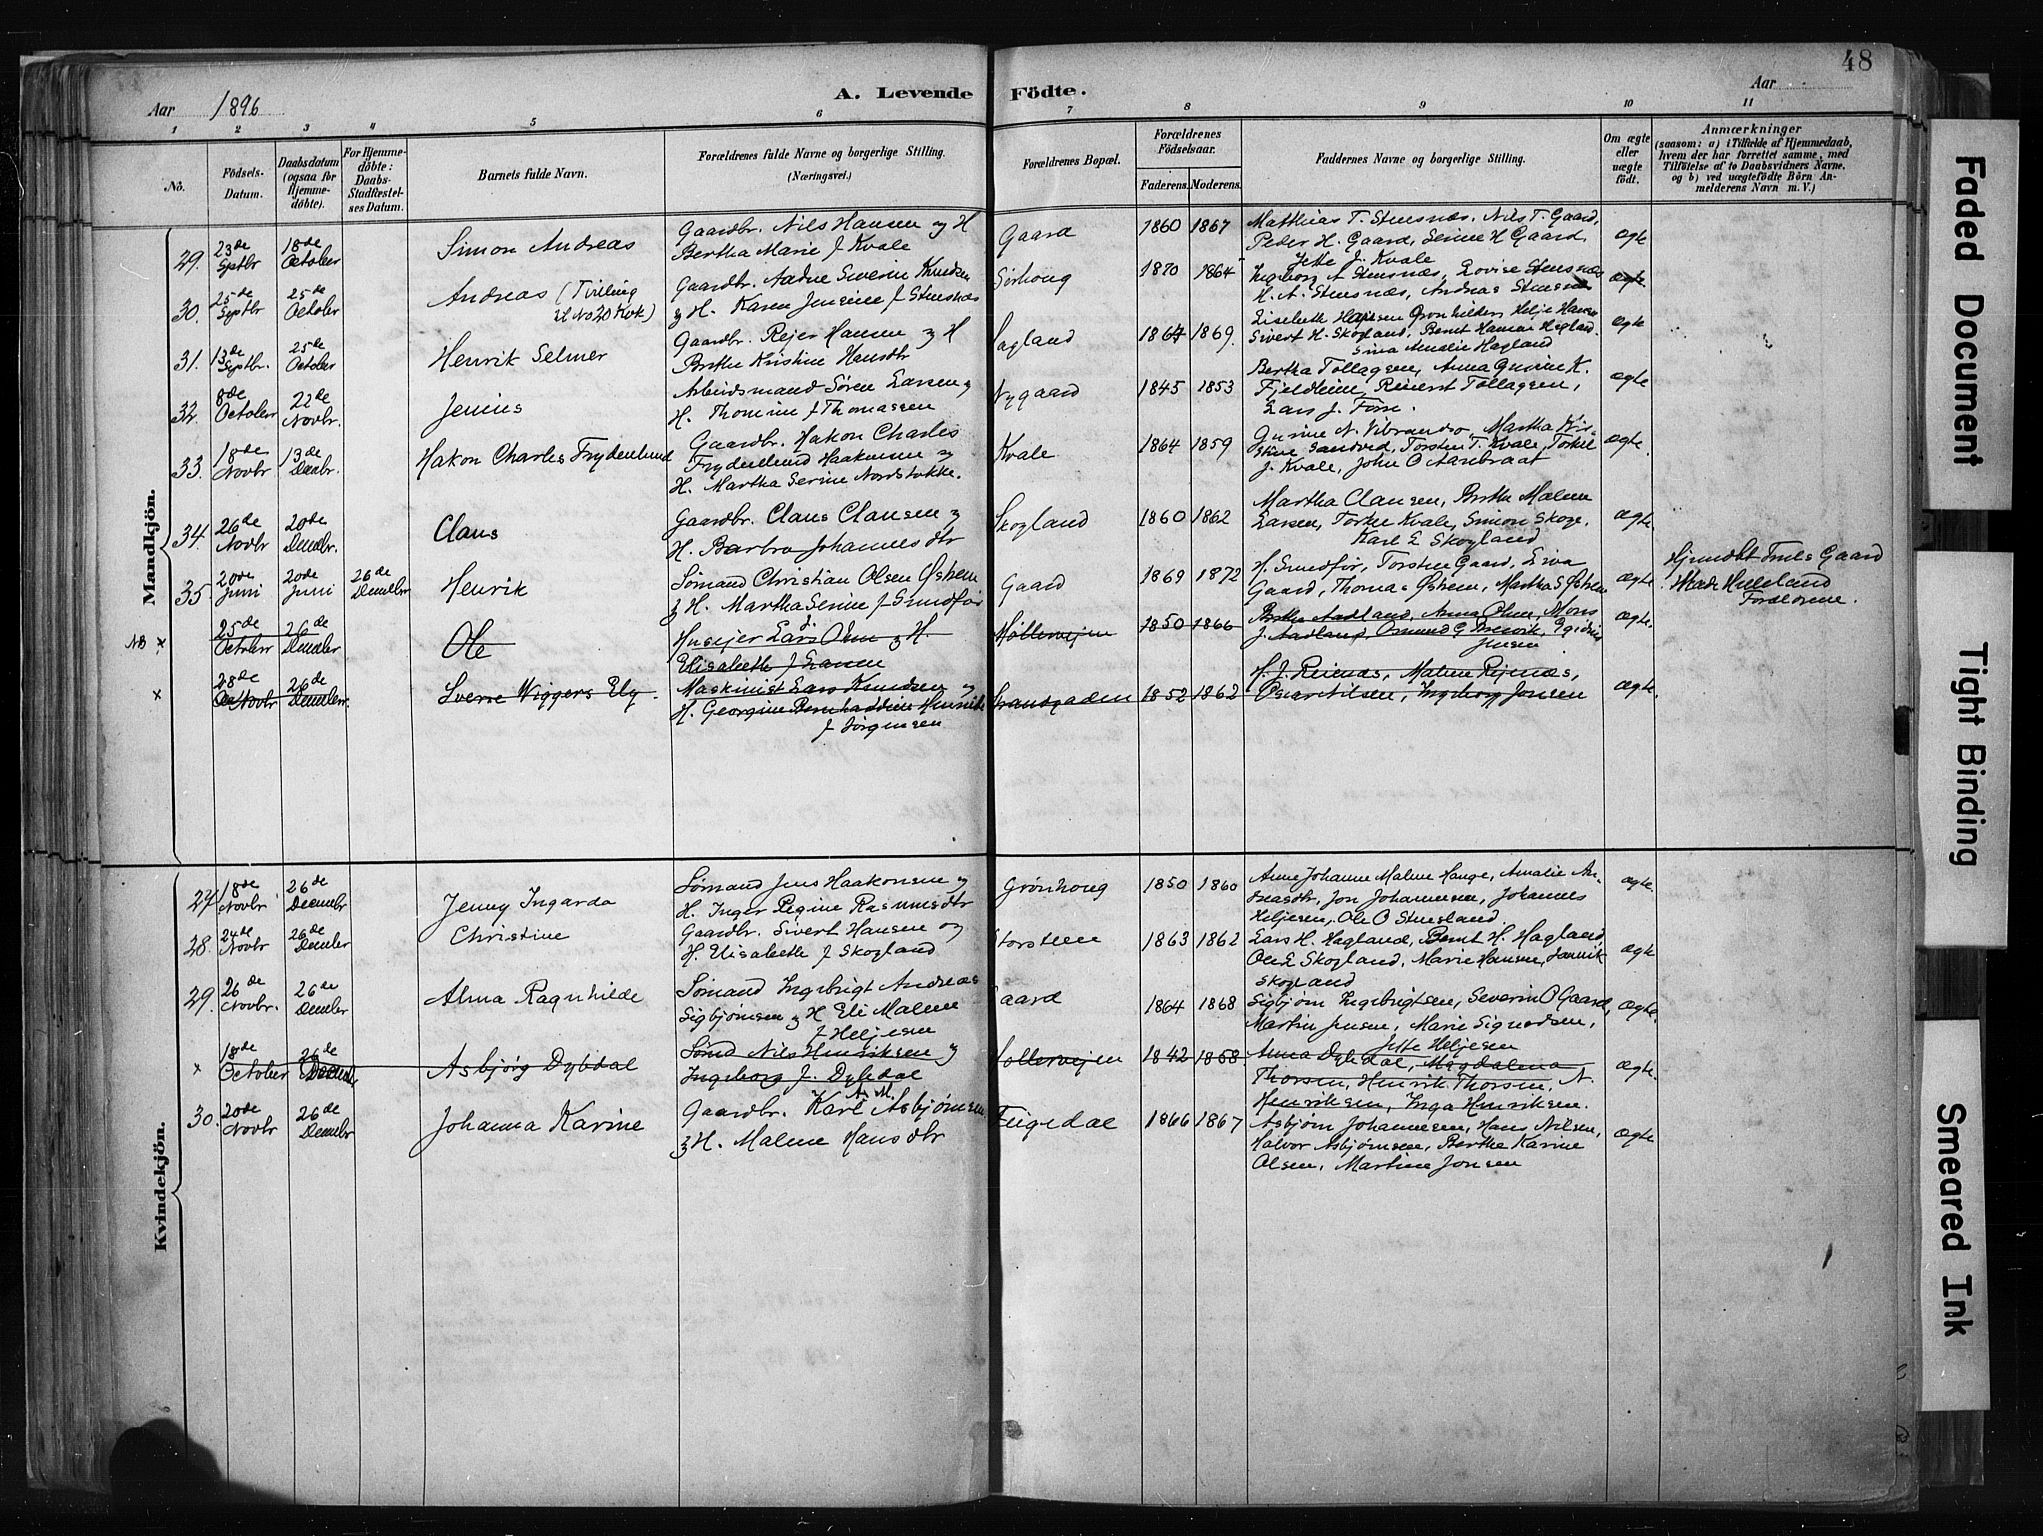 48
Aar 1896
A. Levende Födte.
Aar
1 2 3 4 5 6 7 8 9 10 11
No.
Födsels-Datum.
Daabsdatum (ogsaa for Hjemme-döbte).
For Hjemme-döbte: Daabs-Stadfæstel-ses Datum.
Barnets fulde Navn.
Forældrenes fulde Navne og borgerlige Stilling. (Næringsvei.)
Forældrenes Bopæl.
Forældrenes Födselsaar.
Faderens. Moderens.
Faddernes Navne og borgerlige Stilling.
Om ægte eller uægte födt.
Anmærkninger
(saasom: a) i Tilfælde af Hjemmedaab, hvem der har forrettet samme, med Tilföielse af to Daabsvidners Navne, og b) ved uægtefödte Börn An-melderens Navn m. V.)
Mandkjön.
29. 23de Septbr 18de October Simon Andreas Gaardbr. Nils Hansen og H Bertha Marie J Kvale Gaard 1860 1867 Matthias T. Stensnæs, Nils T. Gaard, Peder H. Gaard, Serine H Gaard, Jette J. Kvale ægte
30. 25de Septbr 25de October Andreas (Tvilling til No 20 Kvk) Gaardbr. Aadne Severin Knudsen og H. Karen Jensine J Stensnæs Sørhoug 1870 1864 Ingeborg A Stensnæs, Lovise Stensnæs H. A. Stensnæs, Andreas Stensnæs ægte.
31. 13de Septbr. 25de October Henrik Selmer Gaardbr. Rejer Hansen og H Berthe Kristine Hansdtr Hagland 1864 1869. Elisabeth Hansen Grønhilder, Helje Hansen Sivert H. Skogland, Bernt Hansen Hagland. Sina Amalie Hagland ægte
32. 8de October 22de Novbr. Jenius Arbeidsmand Søren Larsen og H. Thomine J Thomassen Nygaard 1845 1853 Bertha Tollagsen, Anna Gurine K. Fjeldheim, Reinert Tollagsen, Lars J. Fosse. ægte
33. 18de Novbr 13de Decbr. Hakon Charles Frydenlund Gaardbr. Hakon Charles Frydenlund Haakonsen og H. Martha Serine Nordstokke. Kvale 1864 1859 Gurine N. Vibrandsø, Martha Kristine Sandved, Torsten T. Kvale, Torkel J. Kvale, John O Aanbraat ægte.
34. 26de Novbr 20de Decmbr. Claus Gaardbr. Claus Clausen og H. Barbro Johannesdtr Skogland 1860 1862 Martha Clausen, Berthe Malene Larsen, Torkel Kvale, Simon Skoge. Karl E Skogland ægte.
35. 20de Juni 20de Juni 26de Decmber Henrik Sømand Christian Olsen Østrem og H. Martha Serine J Smedfør Gaard 1869 1872 H. Smedfør, Torsten Gaard, Eva Gaard, Thomas Østrem, Martha S Østrem ægte Hjemdbt Truls Gaard Forældrene.
NB x 25de October 26de Decmber Ole Huseier Lars J. Ohm og H. Elisabeth J Larsen Møllervejen 1850 1866 Berthe Aadland, Anna Ohm, Mons J. Aadland, Osmund G Brevik, Egidius Jensen ægte.
x 28de Novbr 26de Decmber. Sverre Wiggers Ely. Maskinist Lars Knudsen og H. Georgine Bernhardine Henriette J Jørgensen Strandgaden 1852 1862 H. J. Reienæs, Malene Rejenæs, Oscar Nilsen, Ingeborg Jonsen ægte.
Kvindekjön.
27. 18de Novbr 26de Decembr Jenny Ingarda Sømand Jens Haakonsen og H. Inger Regine Rasmusdtr Grønhoug 1850 1860 Anne Johanne Malene Hauge, Amalie Andreasdtr, Jon Johannesen, Johannes Heljesen, Ole O Stuesland ægte.
28. 24de Novbr 26de Decmber Christine Gaardbr. Sivert Hansen og H. Elisabeth J Skogland Storsteen 1863 1862 Lars H. Hagland, Bernt H. Hagland Ole E Skogland, Marie Hansen, Jannik Skogland ægte
29. 26de Novbr. 26de Decmber Alma Ragnhilde Sømand Ingebrigt Andreas Sigbjørnsen og H Eli Malene J Heljesen Gaard 1864 1868 Sigbjørn Ingebrigtsen, Severin O Gaard, Martin Jensen, Marie Sigurdsen, Jette Heljesen ægte.
x 18de October 26de Decmber Asbjørg Dybdal Sømd Nils Henriksen og Ingeborg J. Dybdal Møllervejen 1842 1858 Anna Dybdal, Magdalena Thorsen, Henrik Thorsen, N. Henriksen, Inga Henriksen. ægte.
30. 20de Novbr 26de Decmbr Johanna Karine Gaardbr. Karl A. M. Asbjørnsen og H. Malene Hansdtr Feigedal 1866 1867 Asbjørn Johannesen, Hans Nilsen, Halvor Asbjørnsen, Berthe Karine Olsen, Martine Jonsen ægte.
Faded Document
Tight Binding
Smeared Ink